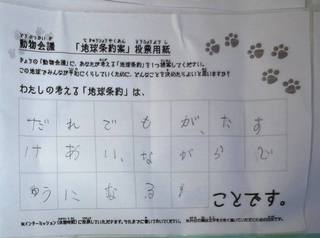 動物会議 「地球条約案」投票用紙
きょうの「動物会議」に、あなたが考える「地球条約」を1つ提案してください。
この地球でみんなが平和にくらしていくために、どんなことを決めたらよいと思いますか?
わたしの考える「地球条約」は、
だれでもが、たす
けあい、ながらじ
ゆうになる!
ことです。